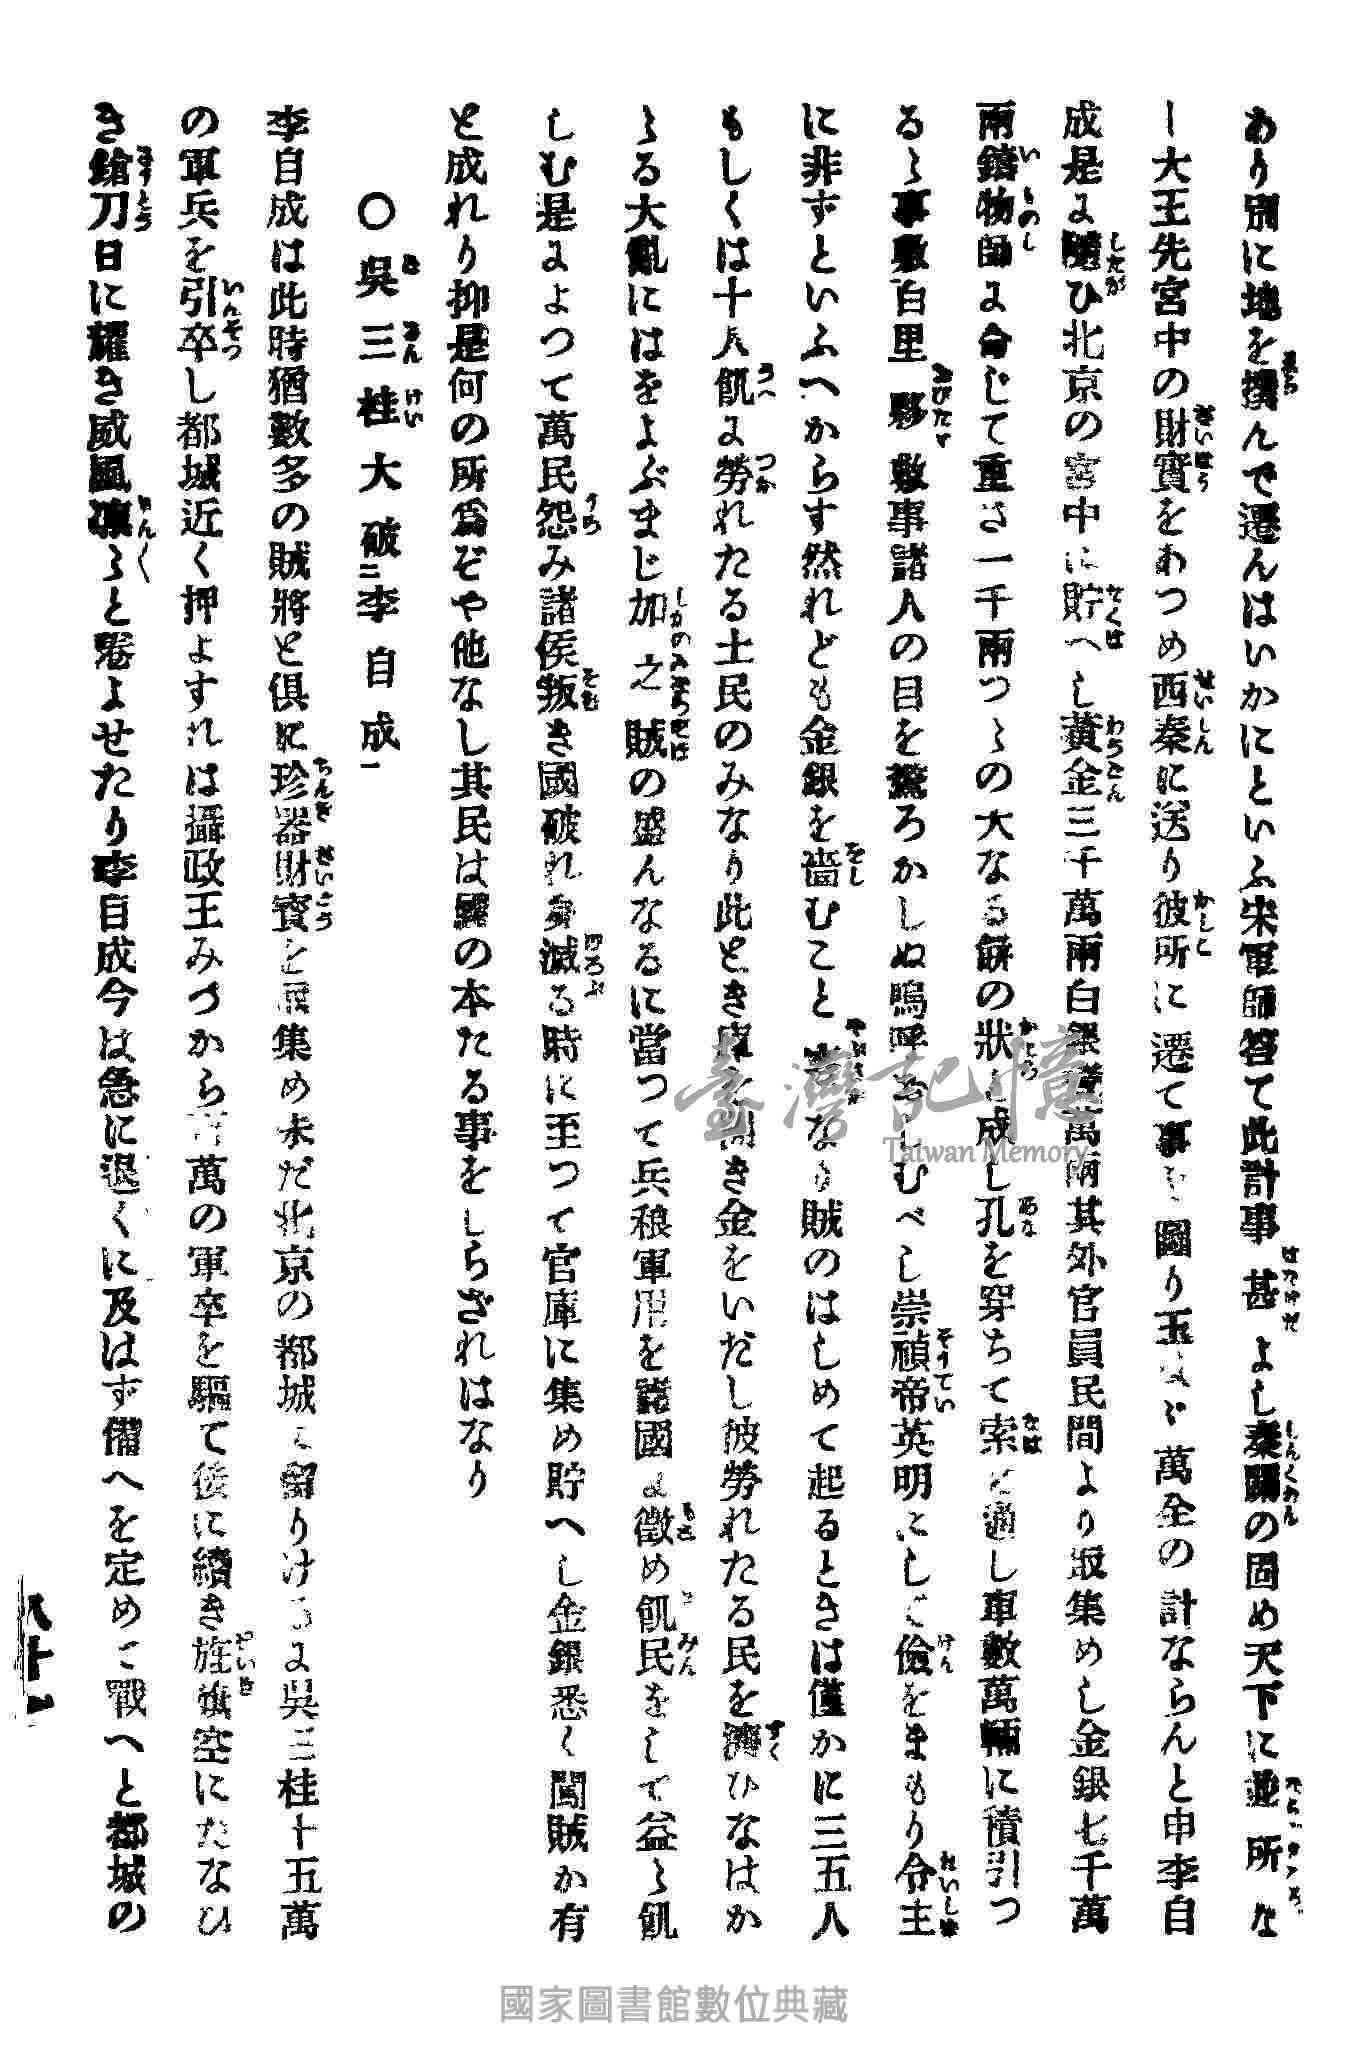 あり別に地を撰んで遷んはいかにといふ宋軍師答て此計事甚よし秦關の固め天下に並所な
し大王先宮中の財寶をあつめ西秦に送り彼所に遷て事を圖り玉はゞ萬全の計ならんと申李自
成是に隨ひ北京の宮中に貯へし黃金三千萬兩白銀萬兩其外官員民間より取集めし金銀七千萬
兩鑄物師に命じて重さ一千兩つゝの大なる餅の狀と成し孔を穿ちて索を通し車數萬輛に積引つ
るゝ事數百里夥敷事諸人の目を驚ろかしぬ嗚呼おしむべし崇禎帝英明にして儉をまもり令主
に非ずといふへからす然れども金銀を嗇むことなり賊のはしめて起るときは僅かに三五人
もしくは十人飢に勞れたる土民のみなり此とき庫を開き金をいだし彼勞れたる民を濟ひなはか
ゝる大亂にはをよぶまじ加之賊の盛んなるに當つて兵粮軍用を諸國に徵め飢民をして益ゝ飢
しむ是によつて萬民怨み諸侯叛き國破れ身滅る時に至つて官庫に集め貯へし金銀悉く闖賊か有
と成れり抑是何の所爲ぞや他なし其民は國の本たる事をしらざれはなり
〇吳三桂大破二李自成一
李自成は此時猶數多の賊將と俱に珍器財寶を取集め未だ北京の都城に留りけるに吳三桂十五萬
の軍兵を引卒し都城近く押よすれは攝政王みづから萬の軍卒を驅て後に續き旌旗空にたなひ
き鎗刀日に耀き威風凜ゝと卷よせたり李自成今は急に退くに及はず備へを定めて戰へと都城の
國家圖書館數位典藏
臺灣記憶
Taiwan Memory